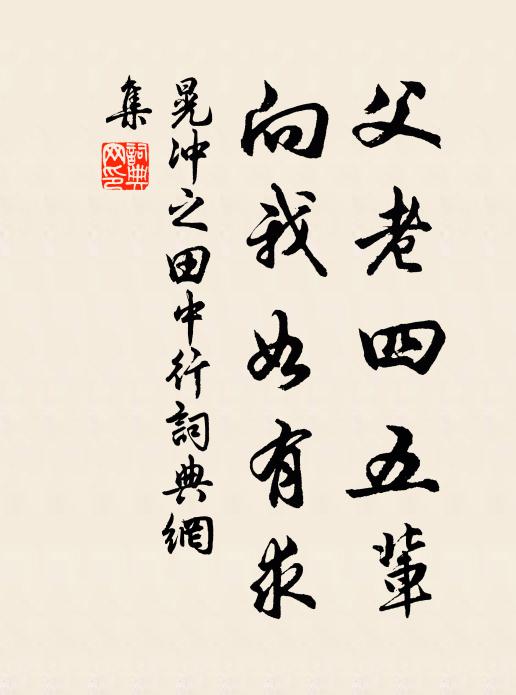 父老四五輩
向我如有求
晁沖之田中行詞典網
集
詞典
网印